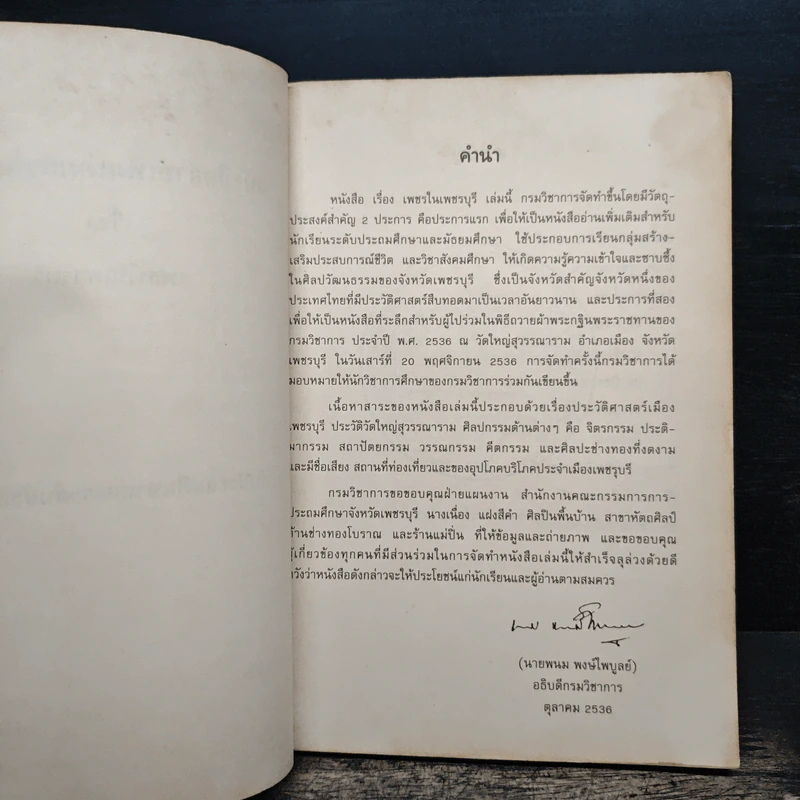 คำนำ
หนังสือ เรื่อง เพชรในเพชรบุรี เล่มนี้ กรมวิชาการจัดทำขึ้นโดยมีวัตถุ-
ประสงค์สำคัญ 2 ประการ คือประการแรก เพื่อให้เป็นหนังสืออ่านเพิ่มเติมสำหรับ
นักเรียนระดับประถมศึกษาและมัธยมศึกษา ใช้ประกอบการเรียนกลุ่มสร้าง-
เสริมประสบการณ์ชีวิต และวิชาสังคมศึกษา ให้เกิดความรู้ความเข้าใจและซาบซึ้ง
ในศิลปวัฒนธรรมของจังหวัดเพชรบุรี ซึ่งเป็นจังหวัดสำคัญจังหวัดหนึ่งของ
ประเทศไทยที่มีประวัติศาสตร์สืบทอดมาเป็นเวลาอันยาวนาน และประการที่สอง
เพื่อให้เป็นหนังสือที่ระลึกสำหรับผู้ไปร่วมในพิธีถวายผ้าพระกฐินพระราชทานของ
กรมวิชาการ ประจำปี พ.ศ. 2536 ณ วัดใหญ่สุวรรณาราม อำเภอเมือง จังหวัด
เพชรบุรี ในวันเสาร์ที่ 20 พฤศจิกายน 2536 การจัดทำครั้งนี้กรมวิชาการได้
มอบหมายให้นักวิชาการศึกษาของกรมวิชาการร่วมกันเขียนขึ้น
เนื้อหาสาระของหนังสือเล่มนี้ประกอบด้วยเรื่องประวัติศาสตร์เมือง
เพชรบุรี ประวัติวัดใหญ่สุวรรณาราม ศิลปกรรมด้านต่างๆ คือ จิตรกรรม ประติ-
มากรรม สถาปัตยกรรม วรรณกรรม คีตกรรม และศิลปะช่างทองที่งดงาม
และมีชื่อเสียง สถานที่ท่องเที่ยวและของอุปโภคบริโภคประจำเมืองเพชรบุรี
กรมวิชาการขอขอบคุณฝ่ายแผนงาน สำนักงานคณะกรรมการการ-
ประถมศึกษาจังหวัดเพชรบุรี นางเนื่อง แฝงสีคำ ศิลปินพื้นบ้าน สาขาหัตถศิลป์
ด้านช่างทองโบราณ และร้านแม่ปิ่น ที่ให้ข้อมูลและถ่ายภาพ และขอขอบคุณ
ผู้เกี่ยวข้องทุกคนที่มีส่วนร่วมในการจัดทำหนังสือเล่มนี้ให้สำเร็จลุล่วงด้วยดี
หวังว่าหนังสือดังกล่าวจะให้ประโยชน์แก่นักเรียนและผู้อ่านตามสมควร
(นายพนม พงษ์ไพบูลย์)
อธิบดีกรมวิชาการ
ตุลาคม 2536